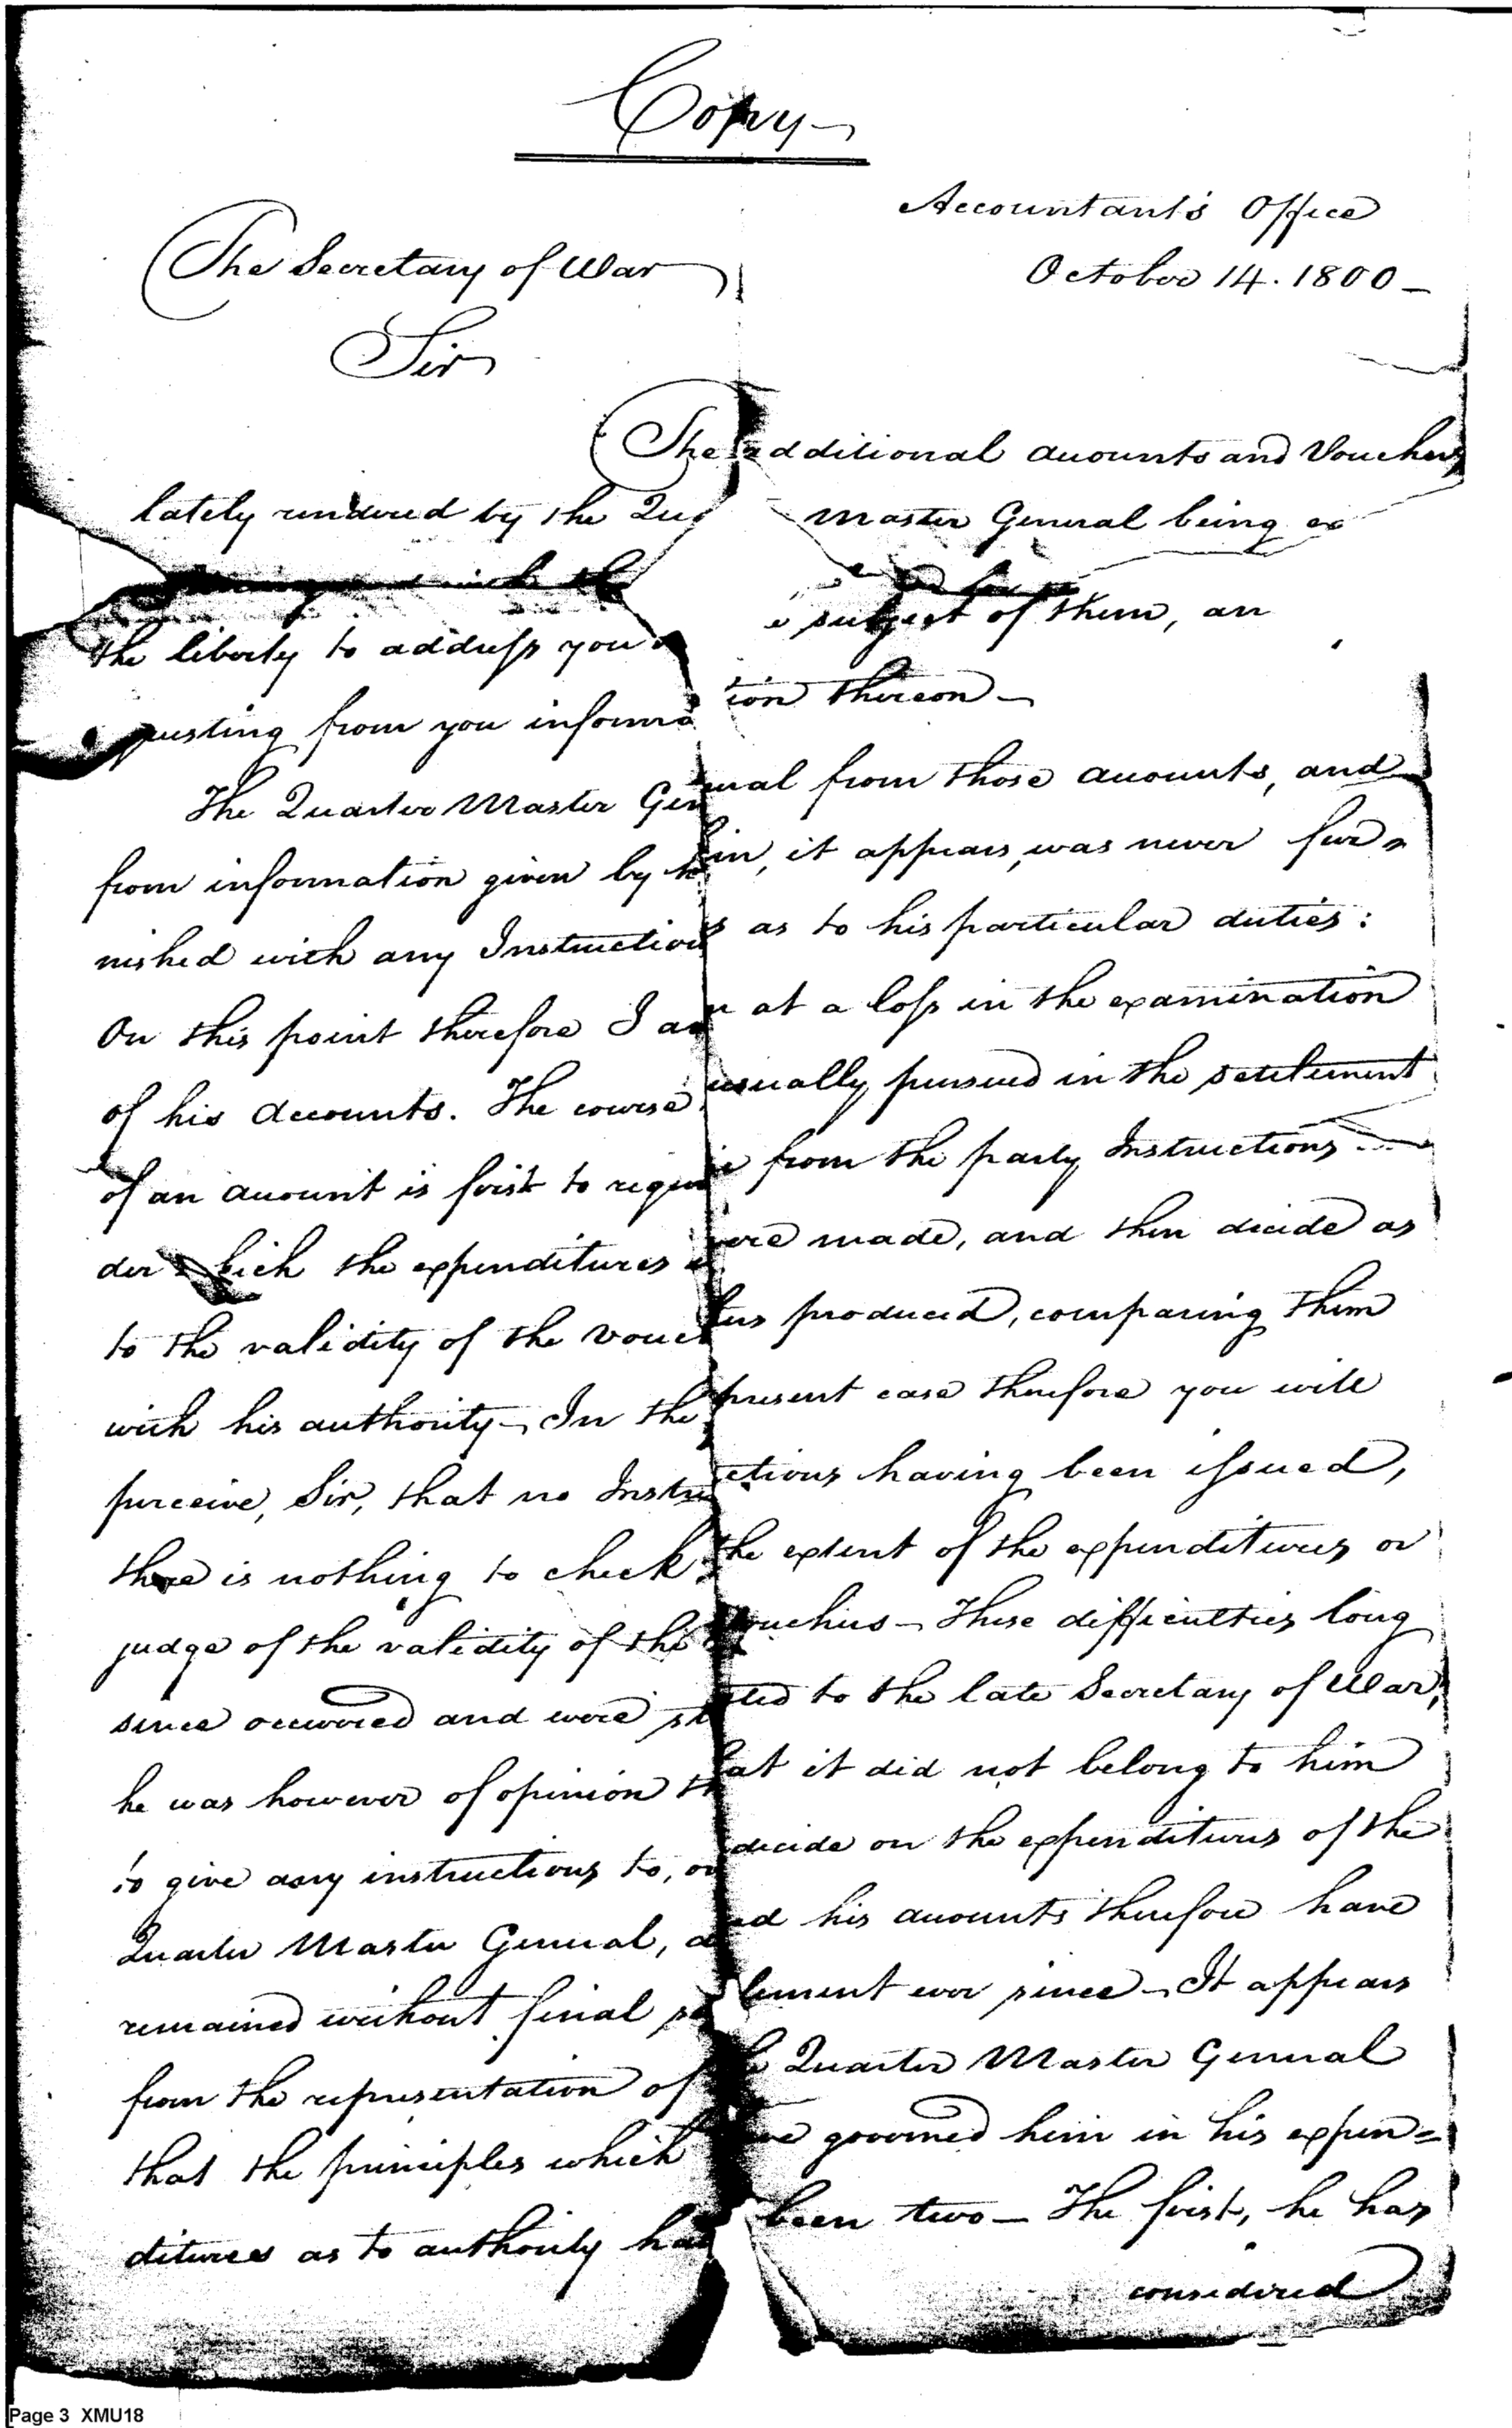 Copy
Accountant's Office
The Secretary of War
October 14. 1800
Sir
The additional accounts and Vouchers
lately rendered by the Qua master General being ex
the
the liberty to address you subject of them, an
questing from you informa tion thereon
The Quarter Master General from those accounts, and
from information given by him, it appears, was never fur=
nished with any Instructions as to his particular duties:
On this point therefore I am at a loss in the examination
of his Accounts. The course usually pursued in the settlement
of an account is first to require from the party Instructions
der which the expenditures were made, and then decide as
to the validity of the vouchers produced, comparing them
with his authority – In the present case therefore you will
perceive, Sir, that no Instructions having been issued,
there is nothing to check the extent of the expenditures or
judge of the validity of the vouchers – These difficulties long
since occurred and were stated to the late Secretary of War,
he was however of opinion that it did not belong to him
to give any instructions to, or decide on the expenditures of the
Quarter Master General, and his accounts therefore have
remained without final settlement ever since – It appears
from the representation of the Quarter Master General
that the principles which have governed him in his expen=
ditures as to authority have been two – The first, he has
considered
Page 3 XMU18